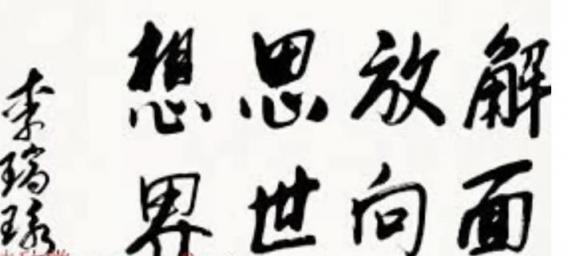 解放思想
面向世界
李瑞环